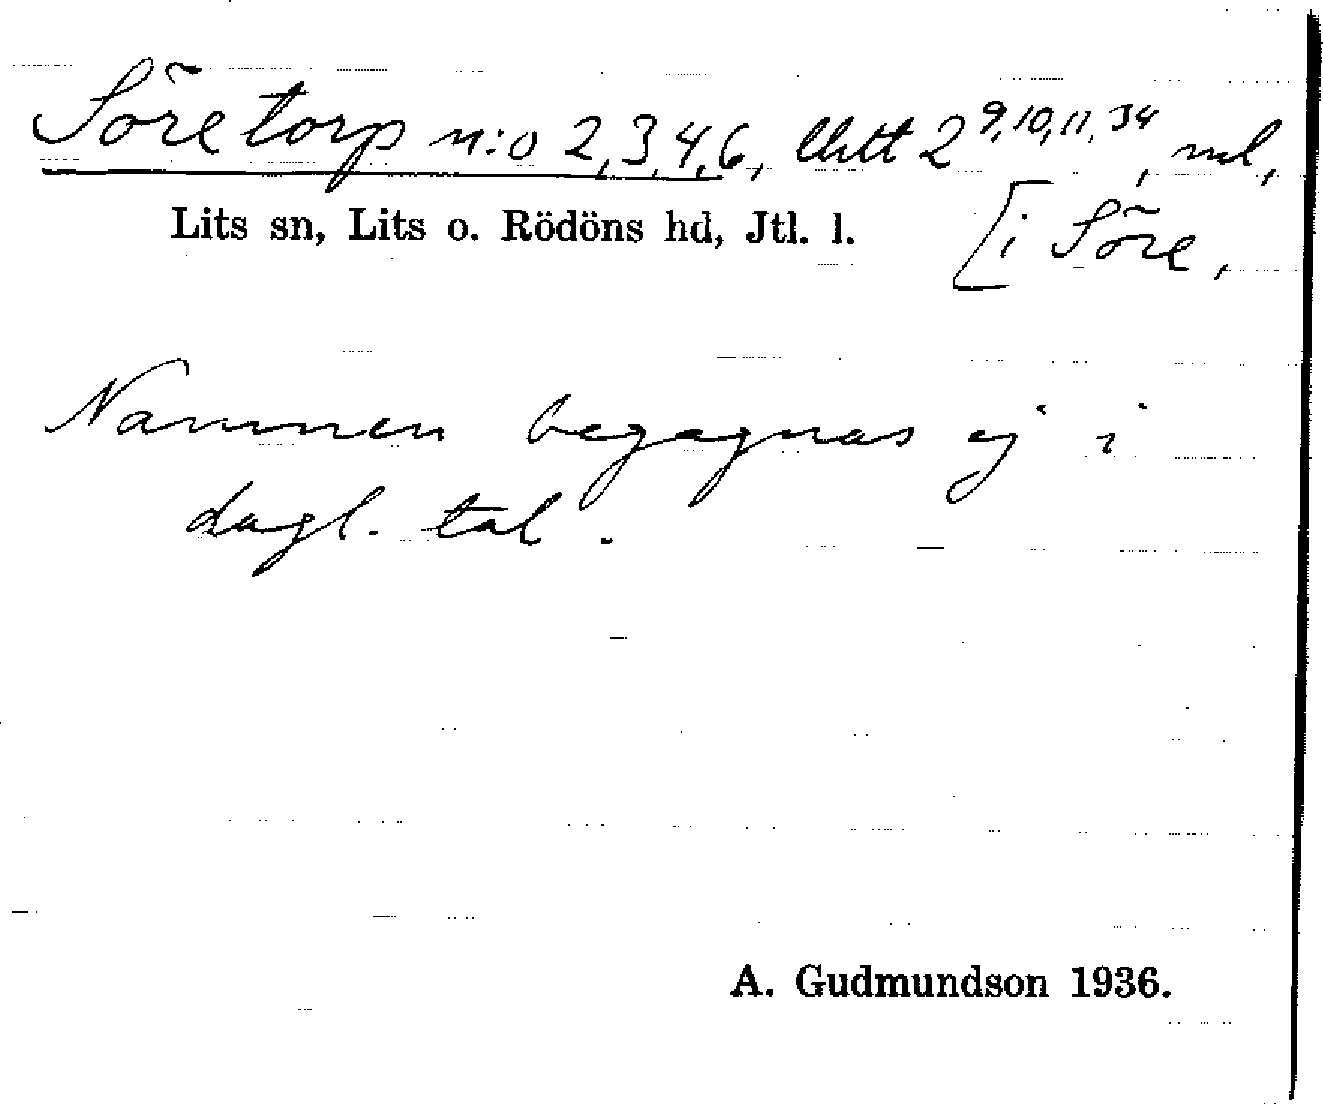 Söre torp n:o 2,3,4,6, litt 2 9,10,11,34, ml,
Lits sn, Lits o. Rödöns hd, Jtl. l.
[i Söre,
Namnen begagnas ej i
dagl. tal.
A. Gudmundson 1936.